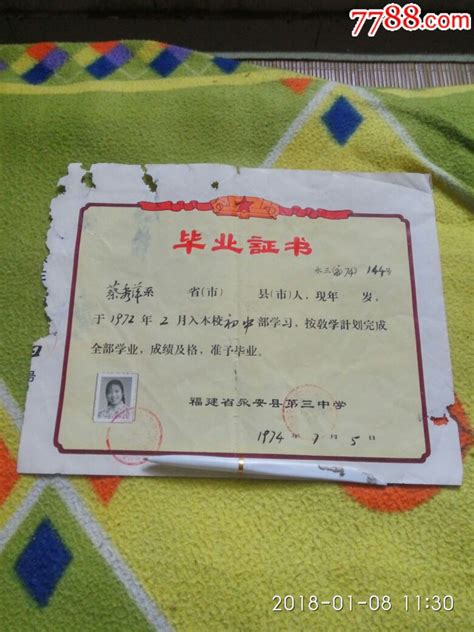 7788.com
毕业証书
永三(初74) 144号
蔡秀萍系 省(市) 县(市)人,现年 岁,
于1972年2月入本校初中部学习,按教学計划完成
全部学业,成绩及格,准予毕业。
福建省永安县第三中学
1974年7月5日
号
2018-01-08 11:30